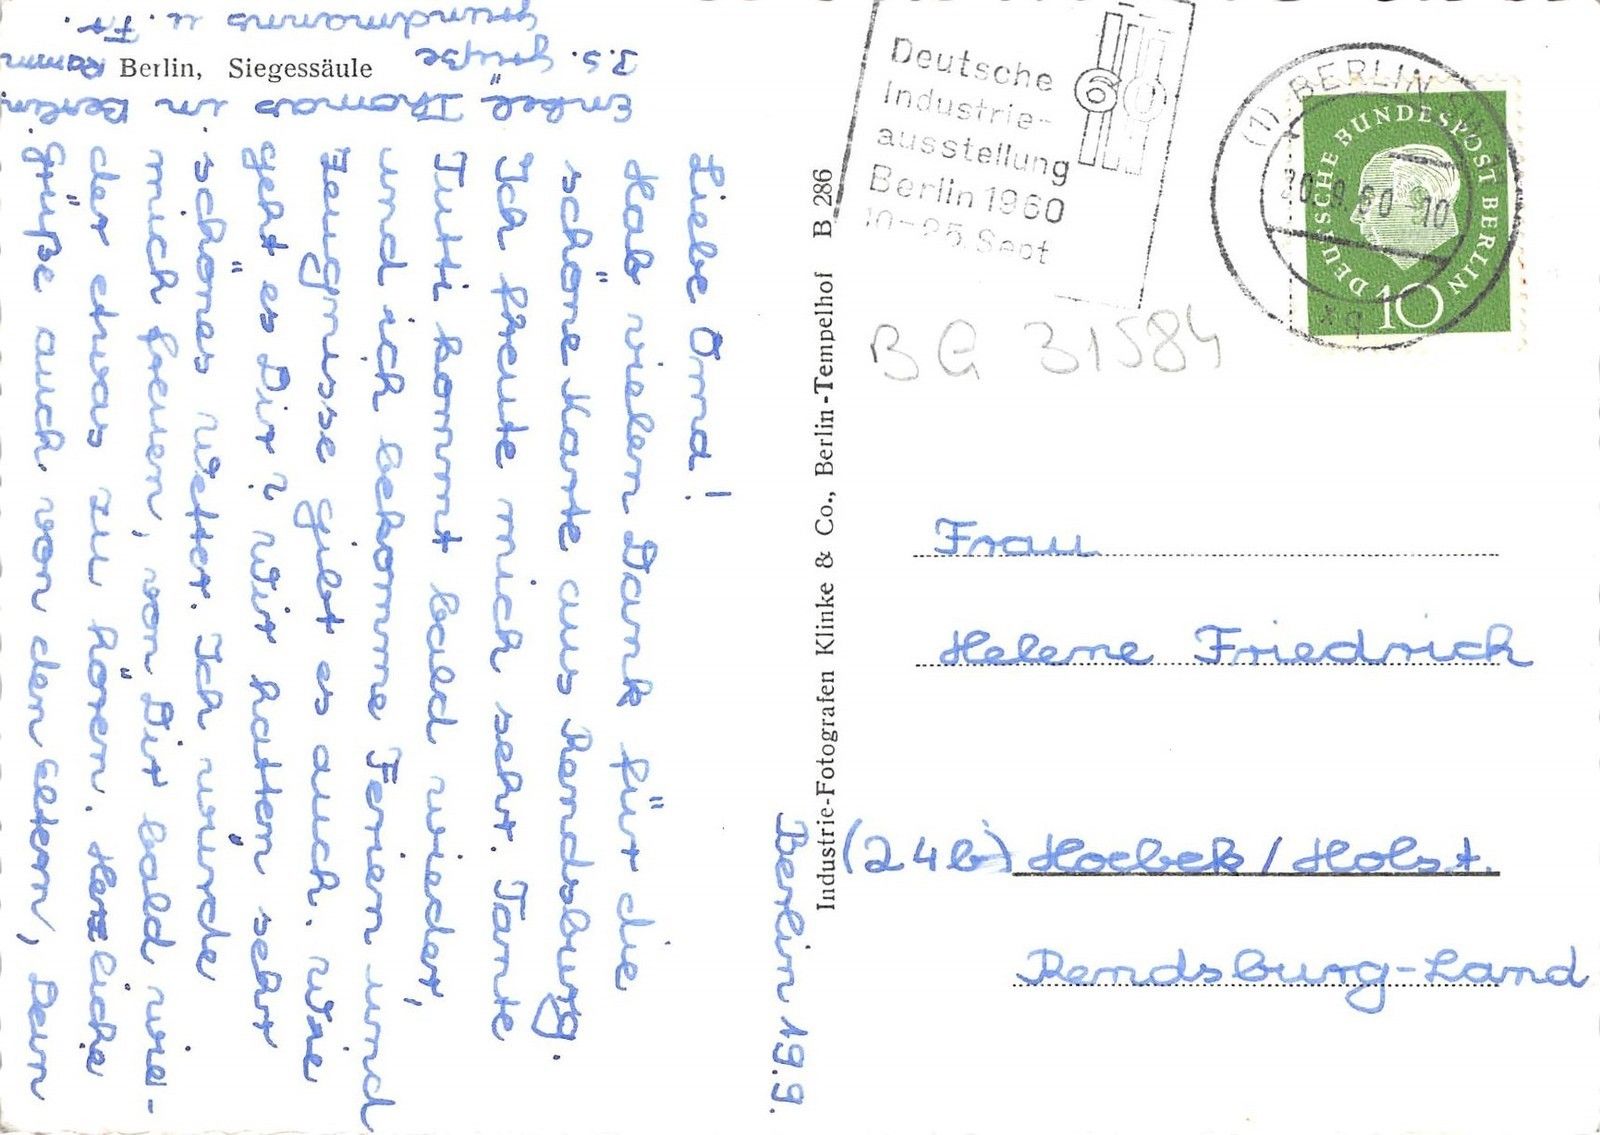 Berlin, Siegessäule
Berlin 19.9.
Liebe Oma!
Hab vielen Dank für die
schöne Karte aus Rendsburg.
Ich freute mich sehr. Tante
Tutti kommt bald wieder,
und ich bekomme Ferien und
Zeugnisse gibt es auch. Wie
geht es Dir? Wir hatten sehr
schönes Wetter. Ich würde
mich freuen, von Dir bald wie-
der etwas zu hören. Herzliche
Grüße auch von den Eltern, Dein
Enkel Thomas in Berlin.
Grüße
Grundmanns u. Fr.
Industrie-Fotografen Klinke & Co., Berlin-Tempelhof B 286
Deutsche
Industrie-
ausstellung
Berlin 1960
10-25. Sept
60
(1) BERLIN
20.9.60-10
DEUTSCHE BUNDESPOST BERLIN
10
BG 31584
Frau
Helene Friedrich
(24b) Hoebek/Holst.
Rendsburg-Land